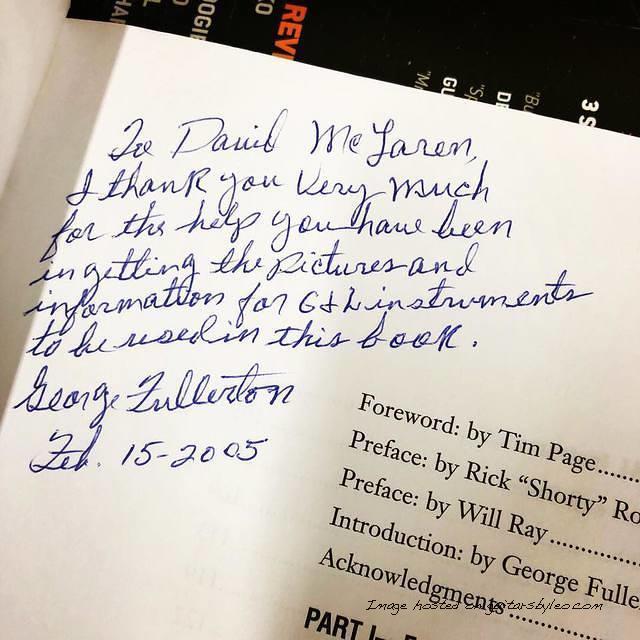 To David McLaren,
I thank you very much
for the help you have been
in getting the pictures and
information for G & L instruments
to be used in this book.
George Fullerton
Feb. 15-2005
Foreword: by Tim Page......
Preface: by Rick “Shorty” Ro
Preface: by Will Ray............
Introduction: by George Fulle
Acknowledgments............
PART I
Image hosted on guitarsbyleo.com
REVI
3 S